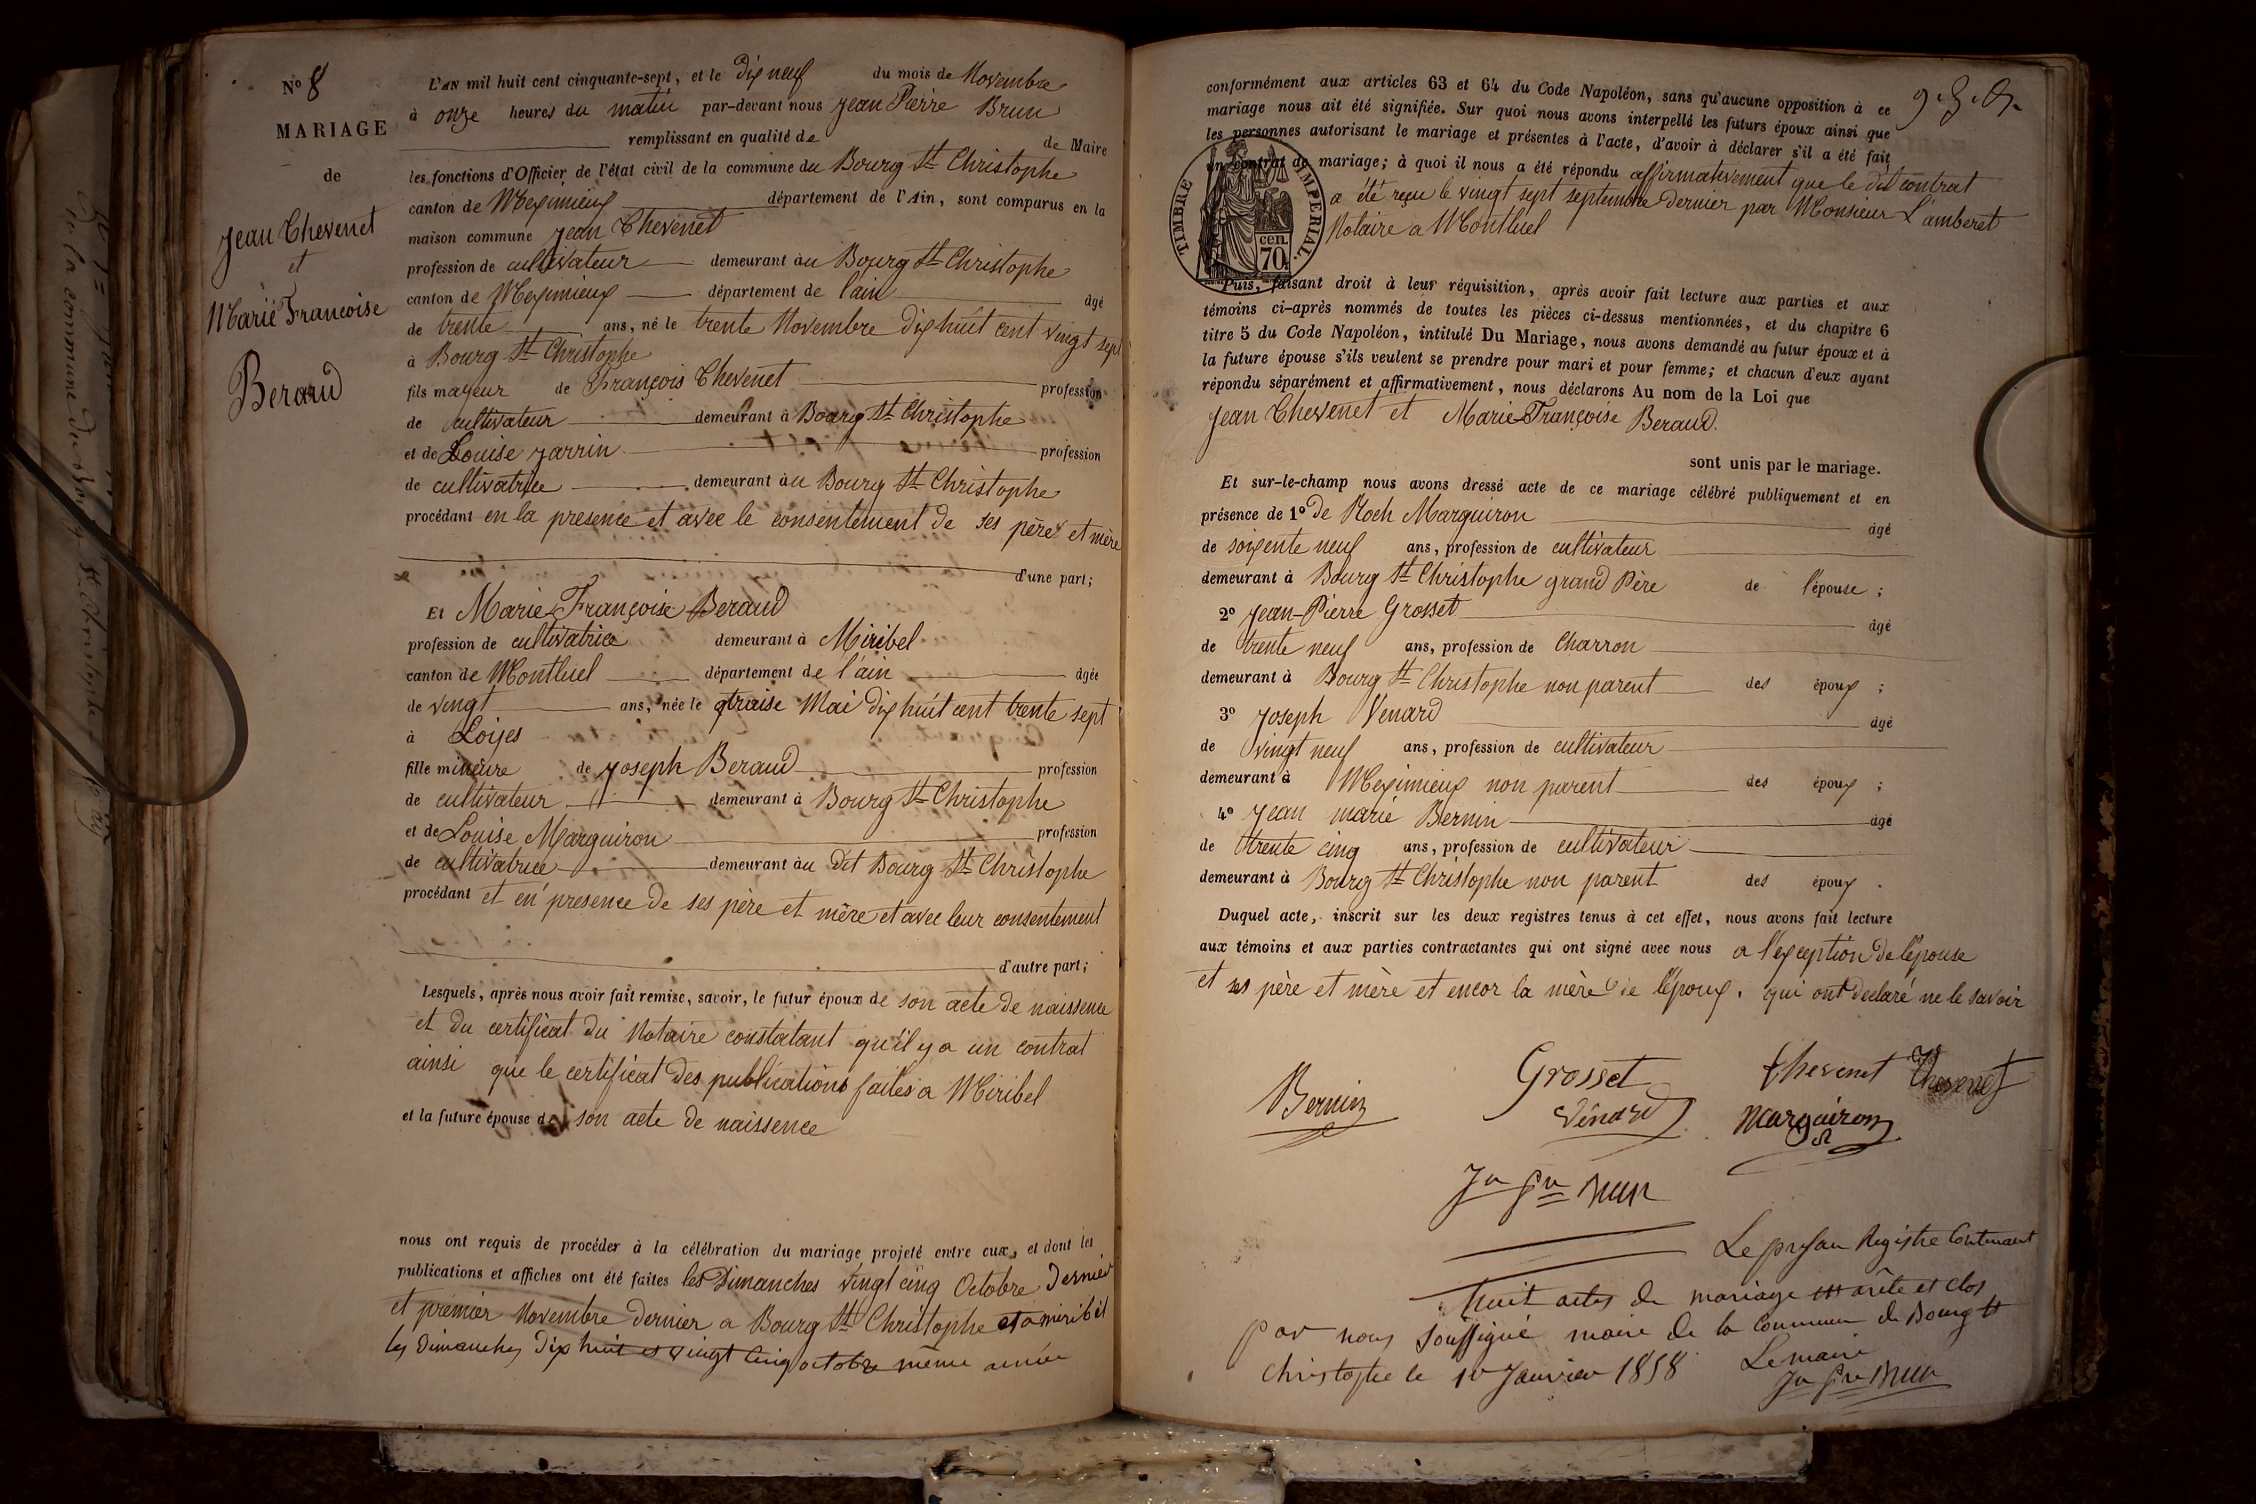 N.º 8
MARIAGE
de
Jean Chevenet
et
Marie Francoise
Beraud
L'AN mil huit cent cinquante-sept, et le dix neuf du mois de Novembre
à onze heures du matin par-devant nous Jean Pierre Brun
remplissant en qualité de de Maire
les fonctions d'Officier de l'état civil de la commune du Bourg St Christophe
canton de Meximieux département de l'Ain, sont comparus en la
maison commune Jean Chevenet
profession de cultivateur demeurant au Bourg St Christophe
canton de Meximieux département de l'ain âgé
de trente ans, né le trente Novembre dix huit cent vingt sept
à Bourg St Christophe
fils mayeur de François Chevenet profession
de cultivateur demeurant à Bourg St Christophe
et de Louise Jarrin profession
de cultivatrice demeurant au Bourg St Christophe
procédant en la presence et avec le consentement de ses père et mère
d'une part;
Et Marie-Françoise Beraud
profession de cultivatrice demeurant à Miribel
canton de Montluel département de l'ain âgée
de vingt ans, née le traise Mai dix huit cent trente sept
à Loijes
fille mineure de Joseph Beraud profession
de cultivateur demeurant à Bourg St Christophe
et de Louise Marguiron profession
de cultivatrice demeurant au dit Bourg St Christophe
procédant et en presence de ses père et mère et avec leur consentement
d'autre part;
Lesquels, après nous avoir fait remise, savoir, le futur époux de son acte de naissence
et du certificat du Notaire constatant qu'il y a un contrat
ainsi que le certificat des publications faites a Miribel
et la future épouse de son acte de naissence
nous ont requis de procéder à la célébration du mariage projeté entre eux, et dont les
publications et affiches ont été faites les Dimanches vingt cinq Octobre dernier
et premier Novembre dernier a Bourg St Christophe et a miribel
les dimanches dix huit et vingt cinq octobre même année
conformément aux articles 63 et 64 du Code Napoléon, sans qu'aucune opposition à ce
mariage nous ait été signifiée. Sur quoi nous avons interpellé les futurs époux ainsi que
les personnes autorisant le mariage et présentes à l'acte, d'avoir à déclarer s'il a été fait
un contrat de mariage; à quoi il nous a été répondu affirmativement que le dit contrat
a été reçu le vingt sept septembre dernier par Monsieur L'amberet
Notaire a Montluel
TIMBRE IMPERIAL.
70 cen.
Puis, faisant droit à leur réquisition, après avoir fait lecture aux parties et aux
témoins ci-après nommés de toutes les pièces ci-dessus mentionnées, et du chapitre 6
titre 5 du Code Napoléon, intitulé Du Mariage, nous avons demandé au futur époux et à
la future épouse s'ils veulent se prendre pour mari et pour femme; et chacun d'eux ayant
répondu séparément et affirmativement, nous déclarons Au nom de la Loi que
Jean Chevenet et Marie-Françoise Beraud.
sont unis par le mariage.
Et sur-le-champ nous avons dressé acte de ce mariage célébré publiquement et en
présence de 1º de Roch Marguiron âgé
de soixente neuf ans, profession de cultivateur
demeurant à Bourg St Christophe grand Père de l'épouse ;
2º Jean-Pierre Grosset âgé
de trente neuf ans, profession de Charron
demeurant à Bourg St Christophe non parent des époux ;
3º Joseph Venard âgé
de vingt neuf ans, profession de cultivateur
demeurant à Meximieux non parent des époux ;
4º Jean marie Bernin âgé
de trente cinq ans, profession de cultivateur
demeurant à Bourg St Christophe non parent des époux .
Duquel acte, inscrit sur les deux registres tenus à cet effet, nous avons fait lecture
aux témoins et aux parties contractantes qui ont signé avec nous a l'exception de l'epouse
et ses père et mère et encor la mère de l'époux. qui ont declaré ne le savoir
Bernin Grosset Chevenet Chevenet
Vénard Marguiron
Jn Pre Brun
Le présan Registre Contenant
huit actes de mariage arête et clos
par nous soussigné maire de la Commune de Bourg St
Christophe le 1er Janvier 1858 Le maire
Jn Pre Brun